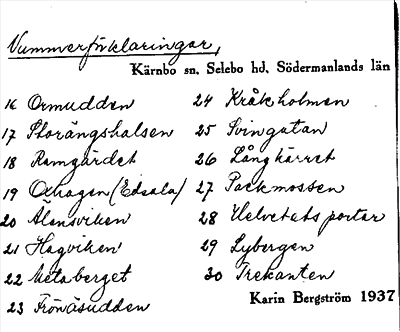 Nummerförklaringar,
Kärnbo sn, Selebo hd, Södermanlands län
16 Ormudden
17 Storängshalsen
18 Ramgärdet
19 Oxhagen (Edsala)
20 Älensviken
21 Hagviken
22 Metaberget
23 Frönäsudden
24 Kråkholmen
25 Svingatan
26 Långkärret
27 Packmossen
28 Helvetets portar
29 Lybergen
30 Trekanten
Karin Bergström 1937